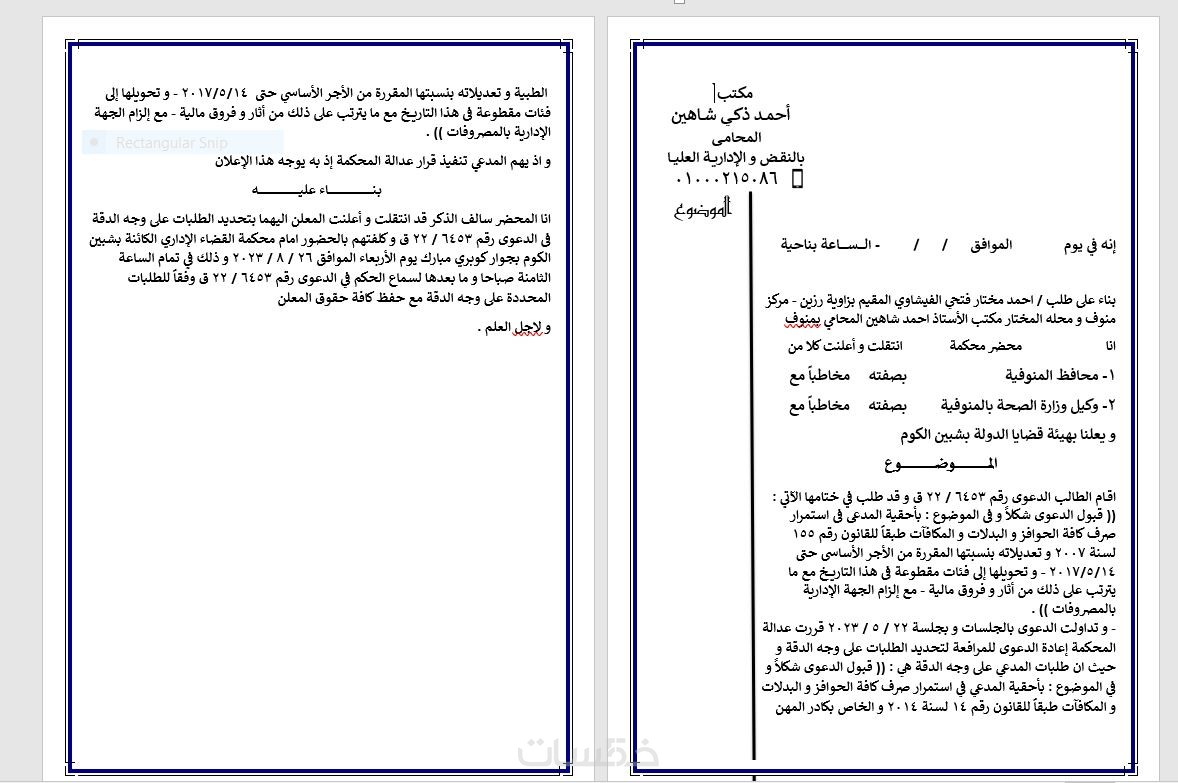 مكتب
أحمد ذكي شاهين
المحامى
بالنقض و الإدارية العليا
٠١٠٠٠٢١٥٠٨٦
الموضوع
إنه في يوم الموافق / / - الساعة بناحية
بناء على طلب / احمد مختار فتحي الفيشاوي المقيم بزاوية رزين - مركز
منوف و محله المختار مكتب الأستاذ احمد شاهين المحامي بمنوف
انا محضر محكمة انتقلت و أعلنت كلا من
١- محافظ المنوفية بصفته مخاطباً مع
٢- وكيل وزارة الصحة بالمنوفية بصفته مخاطباً مع
و يعلنا بهيئة قضايا الدولة بشبين الكوم
المـــــوضـــــوع
اقام الطالب الدعوى رقم ٦٤٥٣ / ٢٢ ق و قد طلب في ختامها الآتي :
(( قبول الدعوى شكلاً و فى الموضوع : بأحقية المدعى فى استمرار
صرف كافة الحوافز و البدلات و المكافآت طبقاً للقانون رقم ١٥٥
لسنة ٢٠٠٧ و تعديلاته بنسبتها المقررة من الأجر الأساسي حتى
٢٠١٧/٥/١٤ - و تحويلها إلى فئات مقطوعة فى هذا التاريخ مع ما
يترتب على ذلك من أثار و فروق مالية - مع إلزام الجهة الإدارية
بالمصروفات )) .
- و تداولت الدعوى بالجلسات و بجلسة ٢٢ / ٥ / ٢٠٢٣ قررت عدالة
المحكمة إعادة الدعوى للمرافعة لتحديد الطلبات على وجه الدقة و
حيث ان طلبات المدعي على وجه الدقة هي : (( قبول الدعوى شكلاً و
في الموضوع : بأحقية المدعي في استمرار صرف كافة الحوافز و البدلات
و المكافآت طبقاً للقانون رقم ١٤ لسنة ٢٠١٤ و الخاص بكادر المهن
الطبية و تعديلاته بنسبتها المقررة من الأجر الأساسي حتى ٢٠١٧/٥/١٤ - و تحويلها إلى
فئات مقطوعة فى هذا التاريخ مع ما يترتب على ذلك من أثار و فروق مالية - مع إلزام الجهة
الإدارية بالمصروفات )) .
Rectangular Snip
و اذ يهم المدعي تنفيذ قرار عدالة المحكمة إذ به يوجه هذا الإعلان
بنـــــــاء عليـــــــه
انا المحضر سالف الذكر قد انتقلت و أعلنت المعلن اليهما بتحديد الطلبات على وجه الدقة
فى الدعوى رقم ٦٤٥٣ / ٢٢ ق و كلفتهم بالحضور امام محكمة القضاء الإداري الكائنة بشبين
الكوم بجوار كوبري مبارك يوم الأربعاء الموافق ٢٦ / ٨ / ٢٠٢٣ و ذلك في تمام الساعة
الثامنة صباحا و ما بعدها لسماع الحكم في الدعوى رقم ٦٤٥٣ / ٢٢ ق وفقاً للطلبات
المحددة على وجه الدقة مع حفظ كافة حقوق المعلن
و لاجل العلم .
خمسات